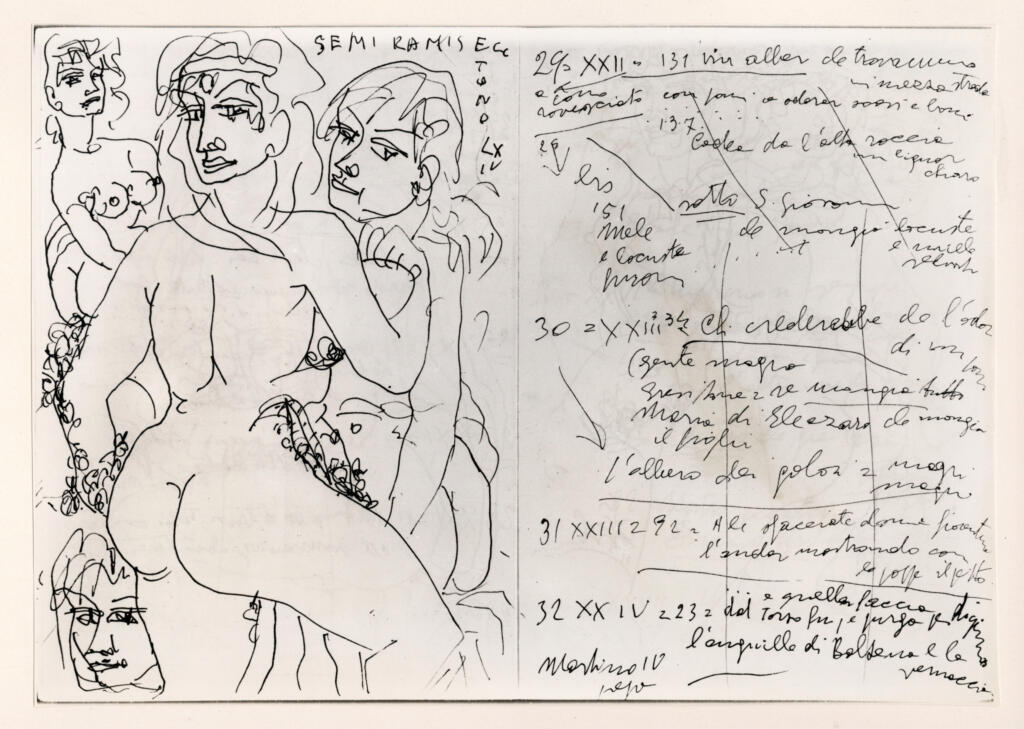 SEMIRAMIS ECC
29 XXII = 131 un alber che trovammo
in mezza strada
rovesciato con pomi a odorar soavi e boni
137
Cadea da l'alta roccia
un liquor
chiaro
sotto S. Giovan
151
Mele
e locuste
che mangia locuste
e miele
30 = XXIII 34 = Chi crederebbe che l'odor
di un pomo
(gente magra
Eresitone = se mangia tutto
Maria di Eleazaro che mangia
il figli
l'albero dei golosi = magri
magri
31 XXIII = 92 = Ale sfacciate donne fiorentine
l'andar mostrando con
le poppe il petto
32 XXIV = 23 = e quella faccia
dal Torso fu, e purga per digiuno
l'anguille di Bolsena e la
vernaccia
Martino IV
papa